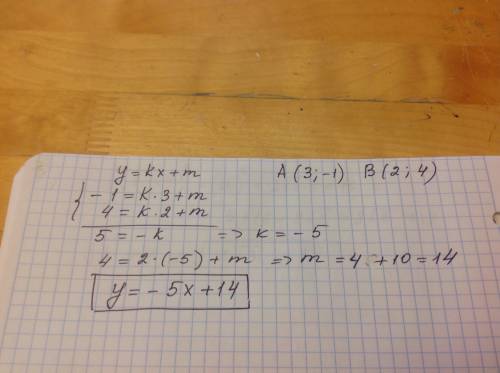 y = kx + m A (3; -1) B (2; 4)
{ - 1 = k · 3 + m
4 = k · 2 + m
5 = - k => k = - 5
4 = 2 · (-5) + m => m = 4 + 10 = 14
y = - 5x + 14